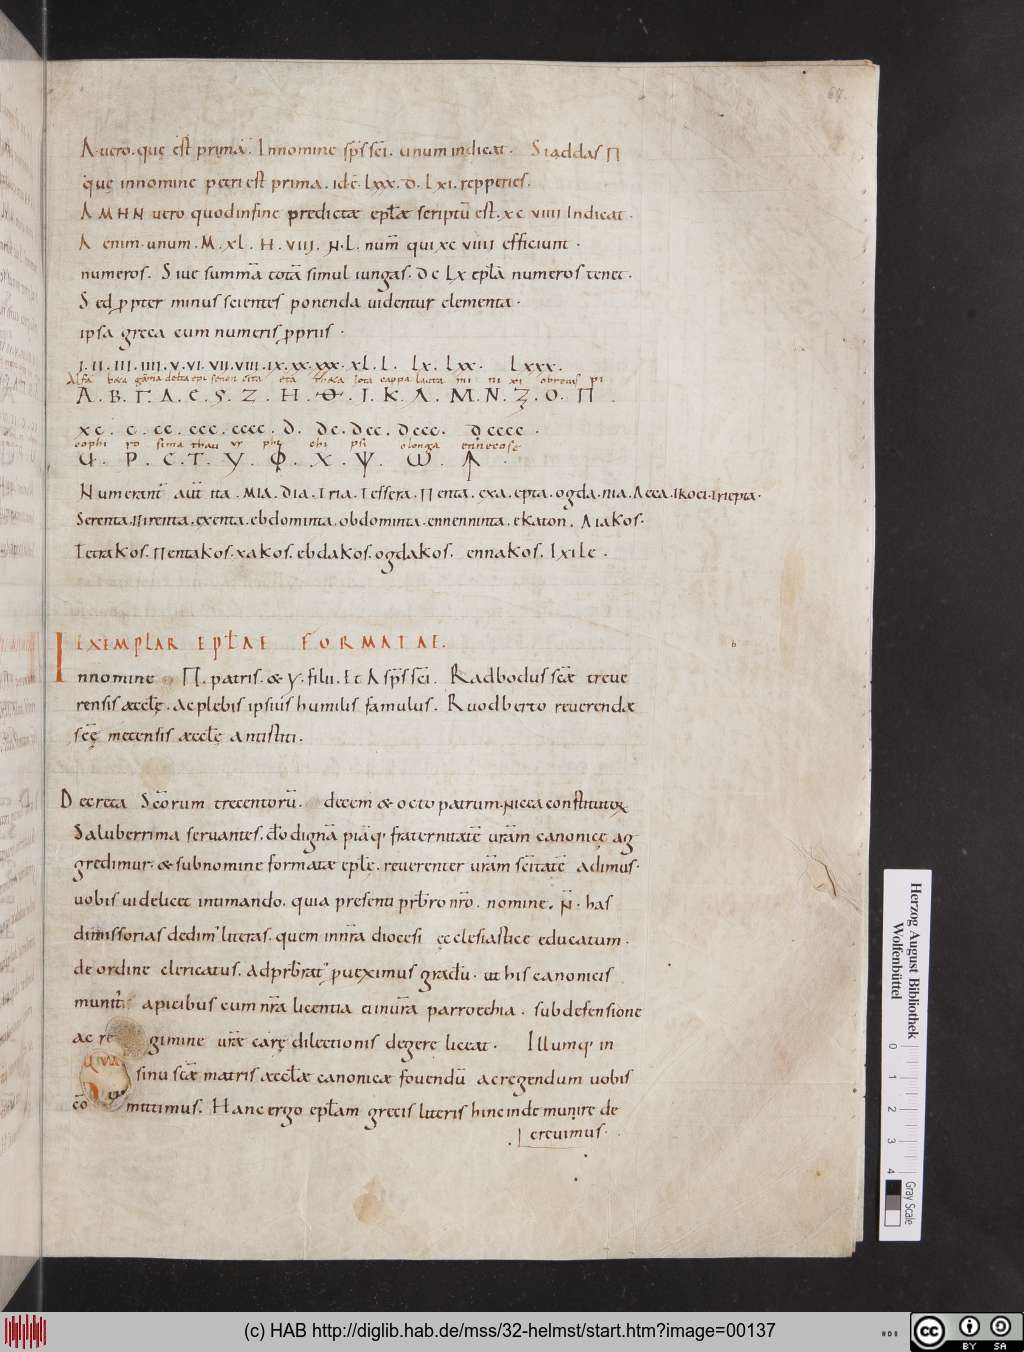 64.
A. uero. quę est prima. Innomine sp̄s sc̄i. unum indicat. Siaddas Π
quę innomine petri est prima. idē. lxxx. d. lxi. repperies.
AMHN uero quodinfine predictæ ept̄æ scriptū est. xc viiii Indicat.
A enim. unum. M. xl. H. viii. N. L. num̄ qui xc viiii efficiunt.
numeros. Siue summā totā simul iungas. dc lx ept̄a numeros tenet.
Sed ꝓpter minus scientes ponenda uidentur elementa.
ipsa greca cum numeris ꝓpriis.
I. II. III. IIII. V. VI. VII. VIII. IX. XX. XXX. XL. L. LX. LXX. LXXX.
Alfa beta gāma delta epi sita eta theta iota cappa mi ni xi pi
Α. Β. Γ. Δ. Ε. Ϛ. Ζ. Η. Θ. Ι. Κ. Λ. Μ. Ν. Ξ. Ο. Π.
xc. c. cc. ccc. cccc. d. dc. dcc. dccc. dcccc.
cophi ro sima thau phi chi psi olonga ennecose
Ϥ. Ρ. Ϲ. Τ. Υ. Φ. Χ. Ψ. ω. ϡ.
Numerant̄ aut̄ ita. MIA. DIA. Tria. Tessera. Penta. exa. epta. ogda. nia. Deca. Ikoci. Trienta.
Serenta. Pirenta. exenta. ebdominta. obdominta. ennenninta. ekaton. Diakos.
Tetrakos. Pentakos. xakos. ebdakos. ogdakos. ennakos. Ixile.
EXEMPLAR EPT̄AE FORMATAE.
Innomine Π. patris. & y. filii. Et A sp̄s sc̄i. Radbodus sc̄æ treue
rensis æcclę̄. ac plebis ipsius humilis famulus. Ruodberto reuerendæ
sc̄ę metensis æccl̄ę antistiti.
Decreta Sc̄orum trecentorū. decem & octo patrum. nicea constitutoꝝ
Saluberrima seruantes. d̄o dignā piāq; fraternitatē ur̄am canonicę ag
gredimur. & subnomine formatæ ept̄ę. reuerenter ur̄am sc̄itatē adimus.
uobis uidelicet intimando. quia presenti pr̄bro nr̄o. nomine. N̄. has
dimissorias dedim᾽ literas. quem in nr̄a diocesi ęcclesiastice educatum.
de ordine clericatus. ad pr̄brat᾽ pueximus gradū. ut his canonicis
munit apicibus cum nr̄a licentia in ur̄a parroechia. sub defensione
ac re gimine ur̄æ carę dilectionis degere liceat. Illumq; in
sinu sc̄æ matris æccl̄æ canonicæ fouendū ac regendum uobis
cō mittimus. Hanc ergo ept̄am grecis literis hincinde munire de
creuimus.
Herzog August Bibliothek
Wolfenbüttel
0 1 2 3 4
Gray Scale
(c) HAB http://diglib.hab.de/mss/32-helmst/start.htm?image=00137
cc BY SA